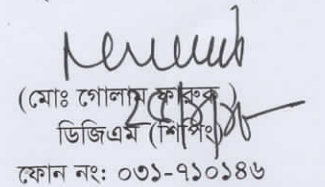 (মোঃ গোলাম ফারুক)
ডিজিএম (শিপিং)
ফোন নং: ০৩১-৭১০১৪৬